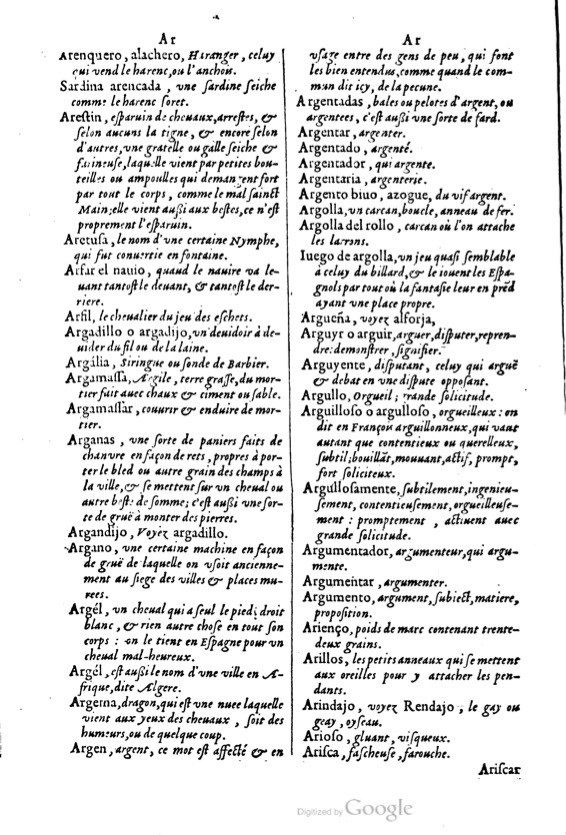 Ar
Arenquero, alachero, Haranger, celuy
qui vend le harenc, ou l'anchou.
Sardina arencada, vne sardine seiche
comme le harenc soret.
Arestin, esparuin de cheuaux, arrestes, &
selon aucuns la tigne, & encore selon
d'autres, vne gratelle ou galle seiche &
farineuse, laquelle vient par petites bou-
teilles ou ampoulles qui demangent fort
par tout le corps, comme le mal sainct
Main; elle vient aussi aux bestes, ce n'est
proprement l'esparuin.
Aretusa, le nom d'vne certaine Nymphe,
qui fut conuertie en fontaine.
Arfar el nauio, quand le nauire va le-
uant tantost le deuant, & tantost le der-
riere.
Arfil, le cheualier du jeu des eschets.
Argadillo o argadijo, vn deuidoir à de-
uider du fil ou de la laine.
Argália, Siringue ou sonde de Barbier.
Argamassa, Argile, terre grasse, du mor-
tier fait auec chaux & ciment ou sable.
Argamassar, couurir & enduire de mor-
tier.
Arganas, vne sorte de paniers faits de
chanure en façon de rets, propres à por-
ter le bled ou autre grain des champs à
la ville, & se mettent sur vn cheual ou
autre beste de somme; c'est aussi vne sor-
te de gruë à monter des pierres.
Argandijo, Voyez argadillo.
Argano, vne certaine machine en façon
de gruë de laquelle on vsoit ancienne-
ment au siege des villes & places mu-
rees.
Argél, vn cheual qui a seul le pied droit
blanc, & rien autre chose en tout son
corps : on le tient en Espagne pour vn
cheual mal-heureux.
Argél, est aussi le nom d'vne ville en A-
frique, dite Algere.
Argema, dragon, qui est vne nuee laquelle
vient aux yeux des cheuaux, soit des
humeurs, ou de quelque coup.
Argen, argent, ce mot est affecté & en
Ar
vsage entre des gens de peu, qui font
les bien entendus, comme quand le com-
mun dit icy, de la pecune.
Argentadas, bales ou pelotes d'argent, ou
argentees, c'est aussi vne sorte de fard.
Argentar, argenter.
Argentado, argenté.
Argentador, qui argente.
Argentaria, argenterie.
Argento biuo, azogue, du vif argent.
Argolla, vn carcan, boucle, anneau de fer.
Argolla del rollo, carcan où l'on attache
les larrons.
Iuego de argolla, vn jeu quasi semblable
à celuy du billard, & le iouent les Espa-
gnols par tout où la fantasie leur en prēd
ayant une place propre.
Argueña, voyez alforja,
Arguyr o arguir, arguer, disputer, repren-
dre: demonstrer, signifier.
Arguyente, disputant, celuy qui arguë
& debat en vne dispute opposant.
Argullo, Orgueil; grande solicitude.
Arguilloso o argulloso, orgueilleux: on
dit en François arguillonneux, qui vaut
autant que contentieux ou querelleux,
subtil, bouillāt, mouuant, actif, prompt,
fort soliciteux.
Argullosamente, subtilement, ingenieu-
sement, contentieusement, orgueilleuse-
ment : promptement, actiuent auec
grande solicitude.
Argumentador, argumenteur, qui argu-
mente.
Argumentar, argumenter.
Argumento, argument, subiect, matiere,
proposition.
Arienço, poids de marc contenant trente-
deux grains.
Arillos, les petits anneaux qui se mettent
aux oreilles pour y attacher les pen-
dants.
Arindajo, voyez Rendajo, le gay ou
geay, oyseau.
Arioso, gluant, visqueux.
Arisca, fascheuse, farouche.
Ariscar
Digitized by Google